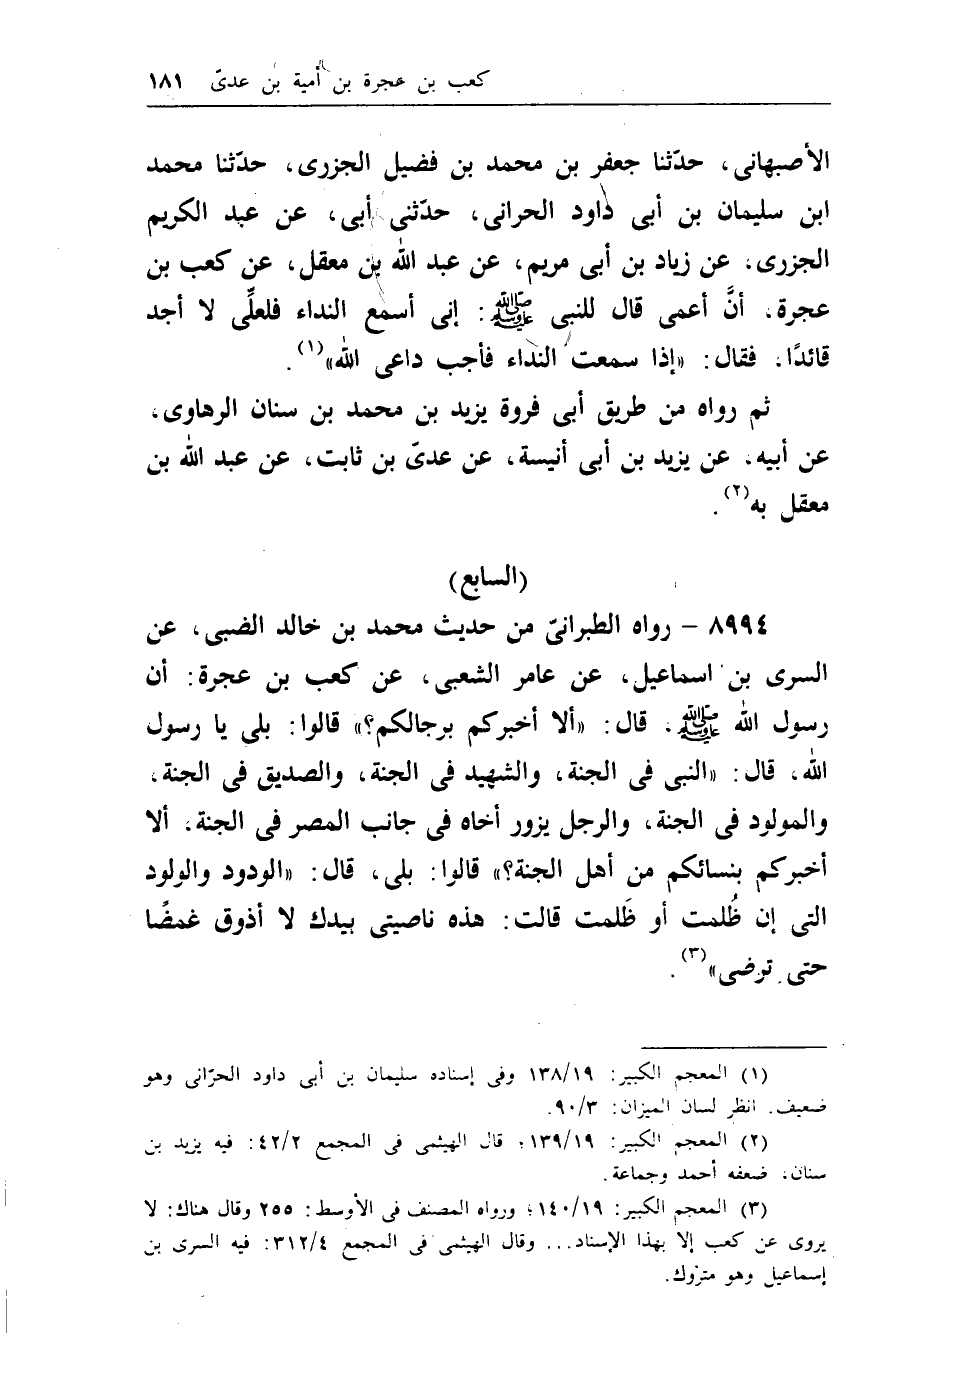 كعب بن عجرة بن أمية بن عدىّ ١٨١
الأصبهانى، حدّثنا جعفر بن محمد بن فضيل الجزرى، حدّثنا محمد
ابن سليمان بن أبى داود الحرانى، حدّثنى أبى، عن عبد الكريم
الجزرى، عن زياد بن أبى مريم، عن عبد الله بن معقل، عن كعب بن
عجرة، أنَّ أعمى قال للنبى ﷺ: إنى أسمع النداء فلعلِّى لا أجد
قائدًا، فقال: «إذا سمعت النداء فأجب داعى الله»(١).
ثم رواه من طريق أبى فروة يزيد بن محمد بن سنان الرهاوى،
عن أبيه، عن يزيد بن أبى أنيسة، عن عدىّ بن ثابت، عن عبد الله بن
معقل به(٢).
(السابع)
٨٩٩٤ – رواه الطبرانىّ من حديث محمد بن خالد الضبى، عن
السرى بن اسماعيل، عن عامر الشعبى، عن كعب بن عجرة: أن
رسول الله ﷺ، قال: «ألا أخبركم برجالكم؟» قالوا: بلى يا رسول
الله، قال: «النبى فى الجنة، والشهيد فى الجنة، والصديق فى الجنة،
والمولود فى الجنة، والرجل يزور أخاه فى جانب المصر فى الجنة، ألا
أخبركم بنسائكم من أهل الجنة؟» قالوا: بلى، قال: «الودود والولود
التى إن ظُلمت أو ظَلمت قالت: هذه ناصيتى بيدك لا أذوق غمضًا
حتى ترضى»(٣).
(١) المعجم الكبير: ١٣٨/١٩ وفى إسناده سليمان بن أبى داود الحرّانى وهو
ضعيف. انظر لسان الميزان: ٩٠/٣.
(٢) المعجم الكبير: ١٣٩/١٩؛ قال الهيثمى فى المجمع ٤٢/٢: فيه يزيد بن
سنان، ضعفه أحمد وجماعة.
(٣) المعجم الكبير: ١٤٠/١٩؛ ورواه المصنف فى الأوسط: ٢٥٥ وقال هناك: لا
يروى عن كعب إلا بهذا الإسناد... وقال الهيثمى فى المجمع ٣١٢/٤: فيه السرى بن
إسماعيل وهو متروك.